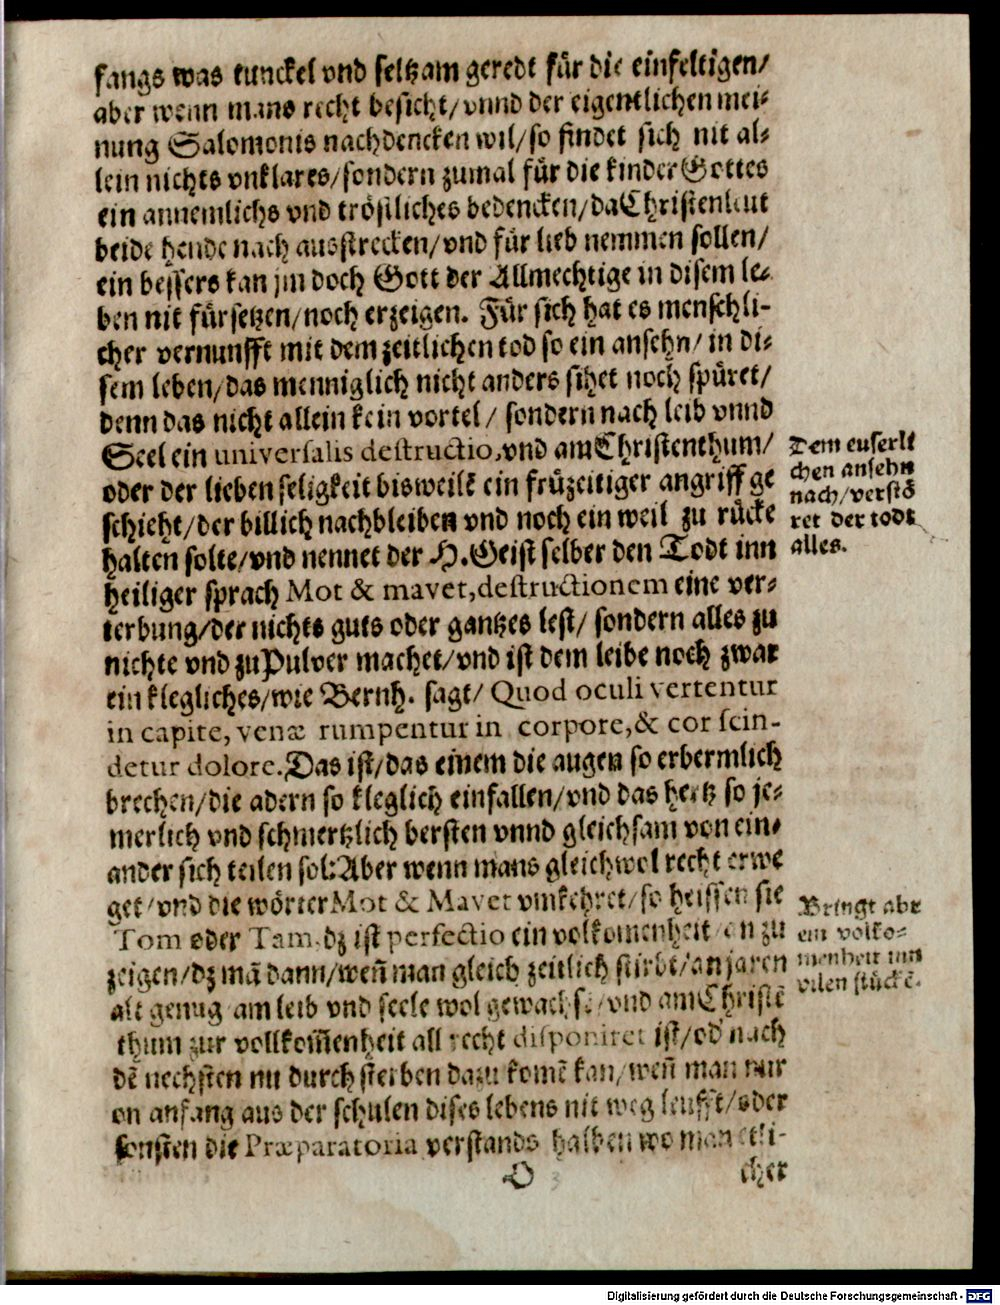 fangs was tunckel vnd seltzam geredt für die einfeltigen/
aber wenn mans recht besicht/ vnnd der eigentlichen mei-
nung Salomonis nachdencken wil/ so findet sich nit al-
lein nichts vnklares/ sondern zumal für die kinder Gottes
ein annemlichs vnd tröstliches bedencken/ da Christenleut
beide hende nach ausstrecken/ vnd für lieb nemmen sollen/
ein bessers kan jm doch Gott der Allmechtige in disem le-
ben nit fürsetzen/ noch erzeigen. Für sich hat es menschli-
cher vernunfft mit dem zeitlichen tod so ein ansehn/ in di-
sem leben/ das menniglich nicht anders sihet noch spüret/
denn das nicht allein kein vortel/ sondern nach leib vnnd
Seel ein universalis destructio, vnd am Christenthum/
oder der lieben seligkeit bisweilē ein früzeitiger angriff ge
schieht/ der billich nachbleiben vnd noch ein weil zu rücke
halten solte/ vnd nennet der H. Geist selber den Todt inn
heiliger sprach Mot & mavet, destructionem eine ver-
terbung/ der nichts guts oder gantzes lest/ sondern alles zu
nichte vnd zu Pulver machet/ vnd ist dem leibe noch zwar
ein klegliches/ wie Bernh. sagt/ Quod oculi vertentur
in capite, venæ rumpentur in corpore, & cor scin-
detur dolore. Das ist/ das einem die augen so erbermlich
brechen/ die adern so kleglich einfallen/ vnd das hertz so je-
merlich vnd schmertzlich bersten vnnd gleichsam von ein-
ander sich teilen sol: Aber wenn mans gleichwol recht erwe
get/ vnd die wörter Mot & Mavet vmkehret/ so heissen sie
Tom oder Tam, dz ist perfectio ein volkomenheit/ an zu
zeigen/ dz mā dann/ weñ man gleich zeitlich stirbt/ an jaren
alt genug am leib vnd seele wol gewachsē/ vnd am Christē
thum zur vollkom̃enheit all recht disponiret ist/ od' nach
dē nechsten nu durch sterben dazu komē kan/ weñ man nur
on anfang aus der schulen dises lebens nit weg leufft/ oder
sonsten die Præparatoria verstands halben wo man etli-
O 3 cher
Dem euserli
chen ansehn
nach/ verstö
ret der todt
alles.
Bringt abr
ein volko-
menheit inn
vilen stückē.
Digitalisierung gefördert durch die Deutsche Forschungsgemeinschaft - DFG